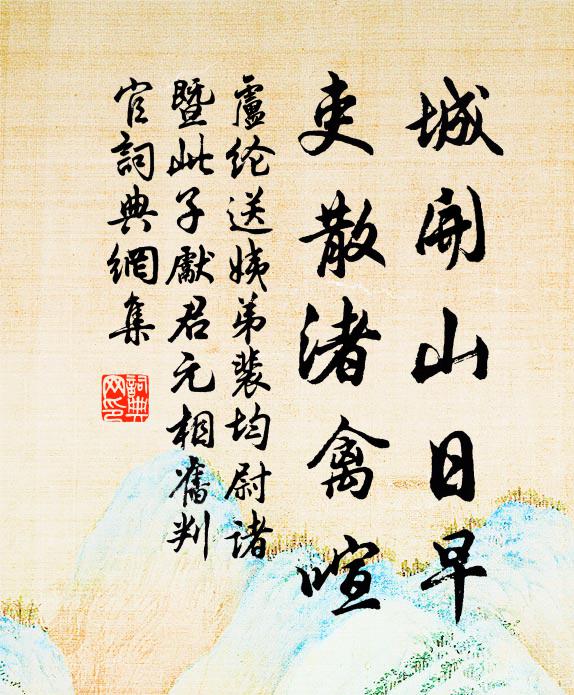 城開山日早
吏散渚禽喧
盧纶送姨弟裴均尉诸
暨此子獻君元相舊判
官詞典網集
詞典
网印